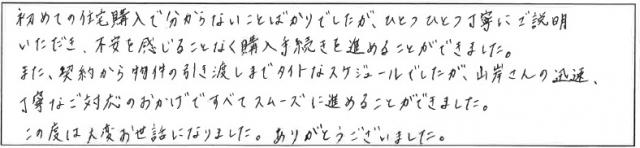 初めての住宅購入で分からないことばかりでしたが、ひとつひとつ丁寧にご説明
いただき、不安を感じることなく購入手続きを進めることができました。
また、契約から物件の引き渡しまでタイトなスケジュールでしたが、山岸さんの迅速、
丁寧なご対応のおかげですべてスムーズに進めることができました。
この度は大変お世話になりました。ありがとうございました。